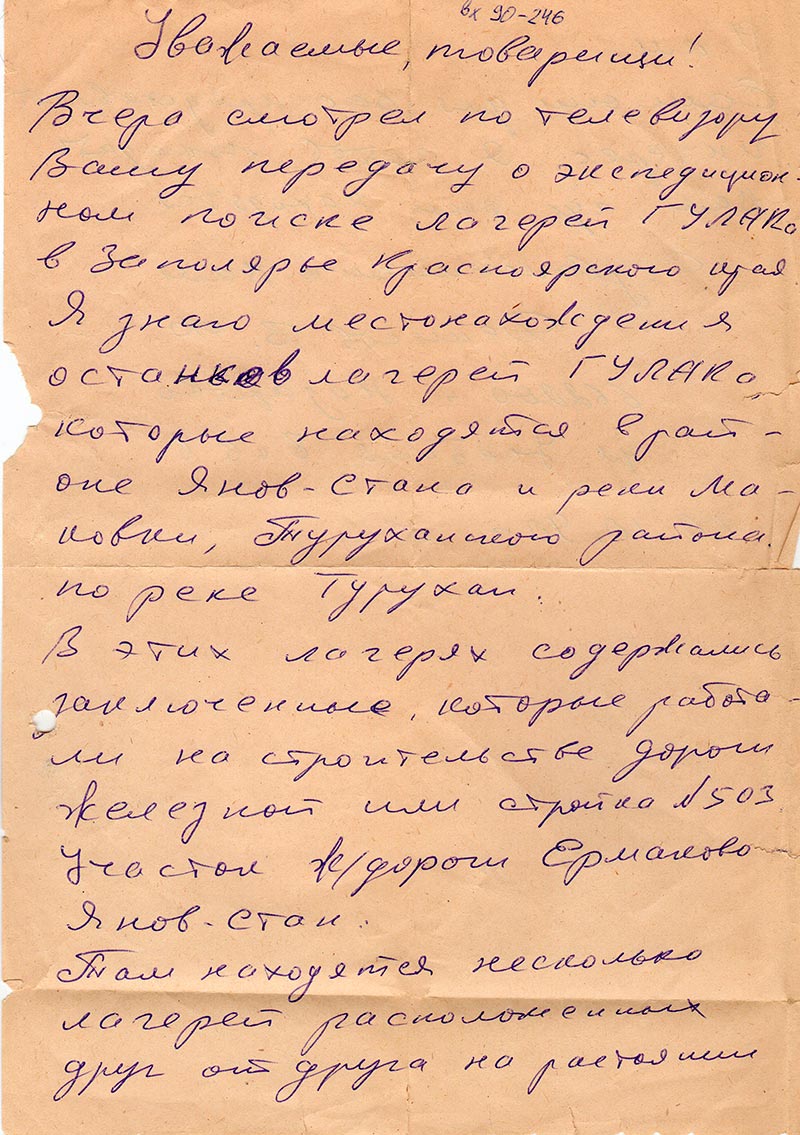 вх 90-246
Уважаемые, товарищи!
Вчера смотрел по телевизору
Вашу передачу о экспедицион-
ном поиске лагерей ГУЛАКа
в Заполярье Красноярского края
Я знаю местонахождения
останков лагерей ГУЛАКа
которые находятся в рай-
оне Янов-Стана и реки Ма-
ковки, Туруханского района.
по реке Турухан.
В этих лагерях содержались
заключенные, которые работа-
ли на строительстве дороги
железной или стройка №503
Участок ж/дороги Ермаково-
Янов-Стан.
Там находятся несколько
лагерей расположенных
друг от друга на растоянии